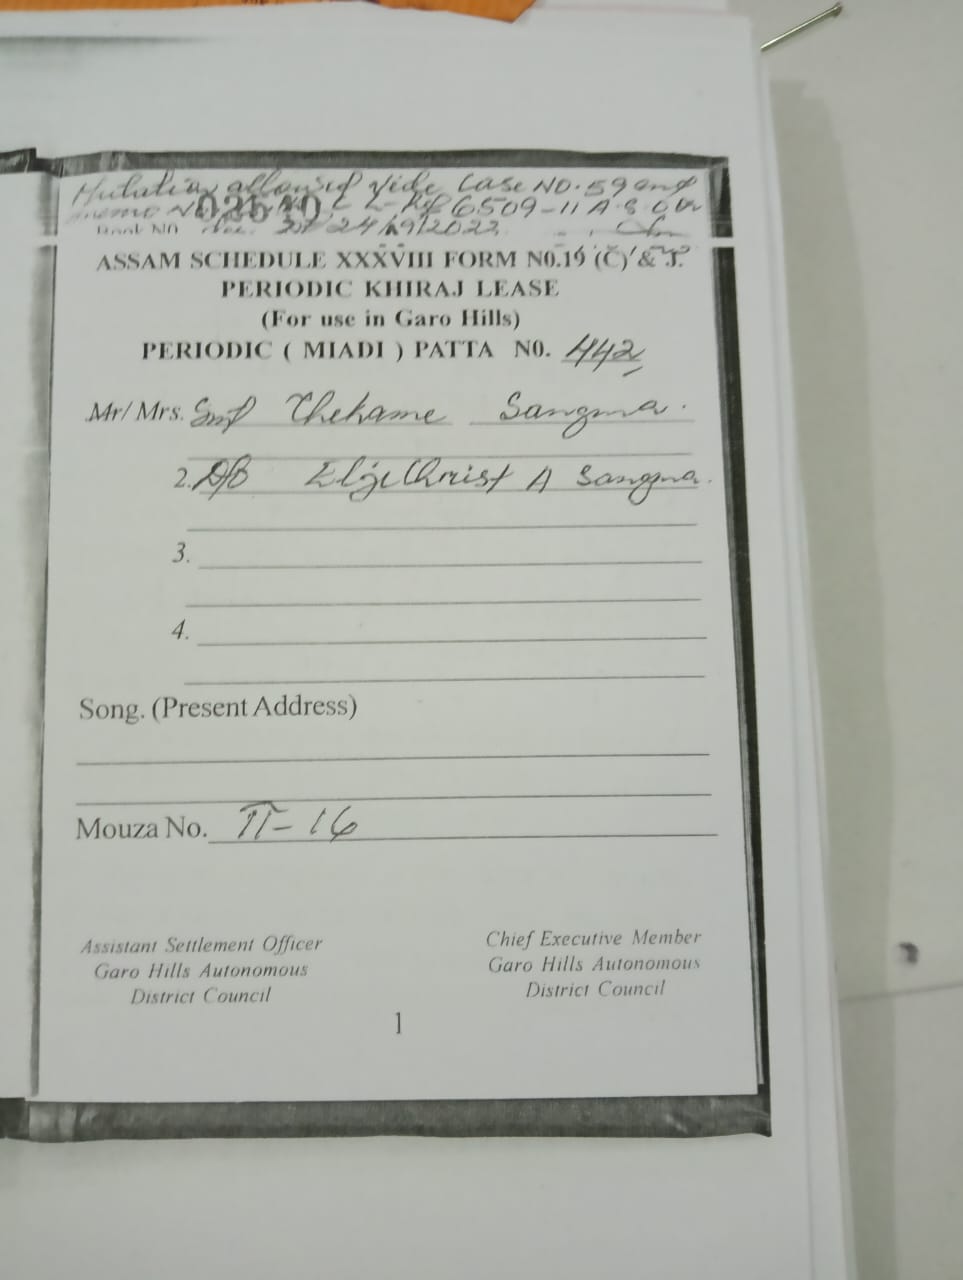 Mutation allowed Vide Case NO. 59 and
memo No. 6509-11 A.S.O
Book NO 02540 24/9/2022
ASSAM SCHEDULE XXXVIII FORM N0.19 (C) & J.
PERIODIC KHIRAJ LEASE
(For use in Garo Hills)
PERIODIC ( MIADI ) PATTA N0. 442
Mr/ Mrs. Smt Chekame Sangma.
2. Sangma.
3.
4.
Song. (Present Address)
Mouza No. II-16
Assistant Settlement Officer
Garo Hills Autonomous
District Council
Chief Executive Member
Garo Hills Autonomous
District Council
1